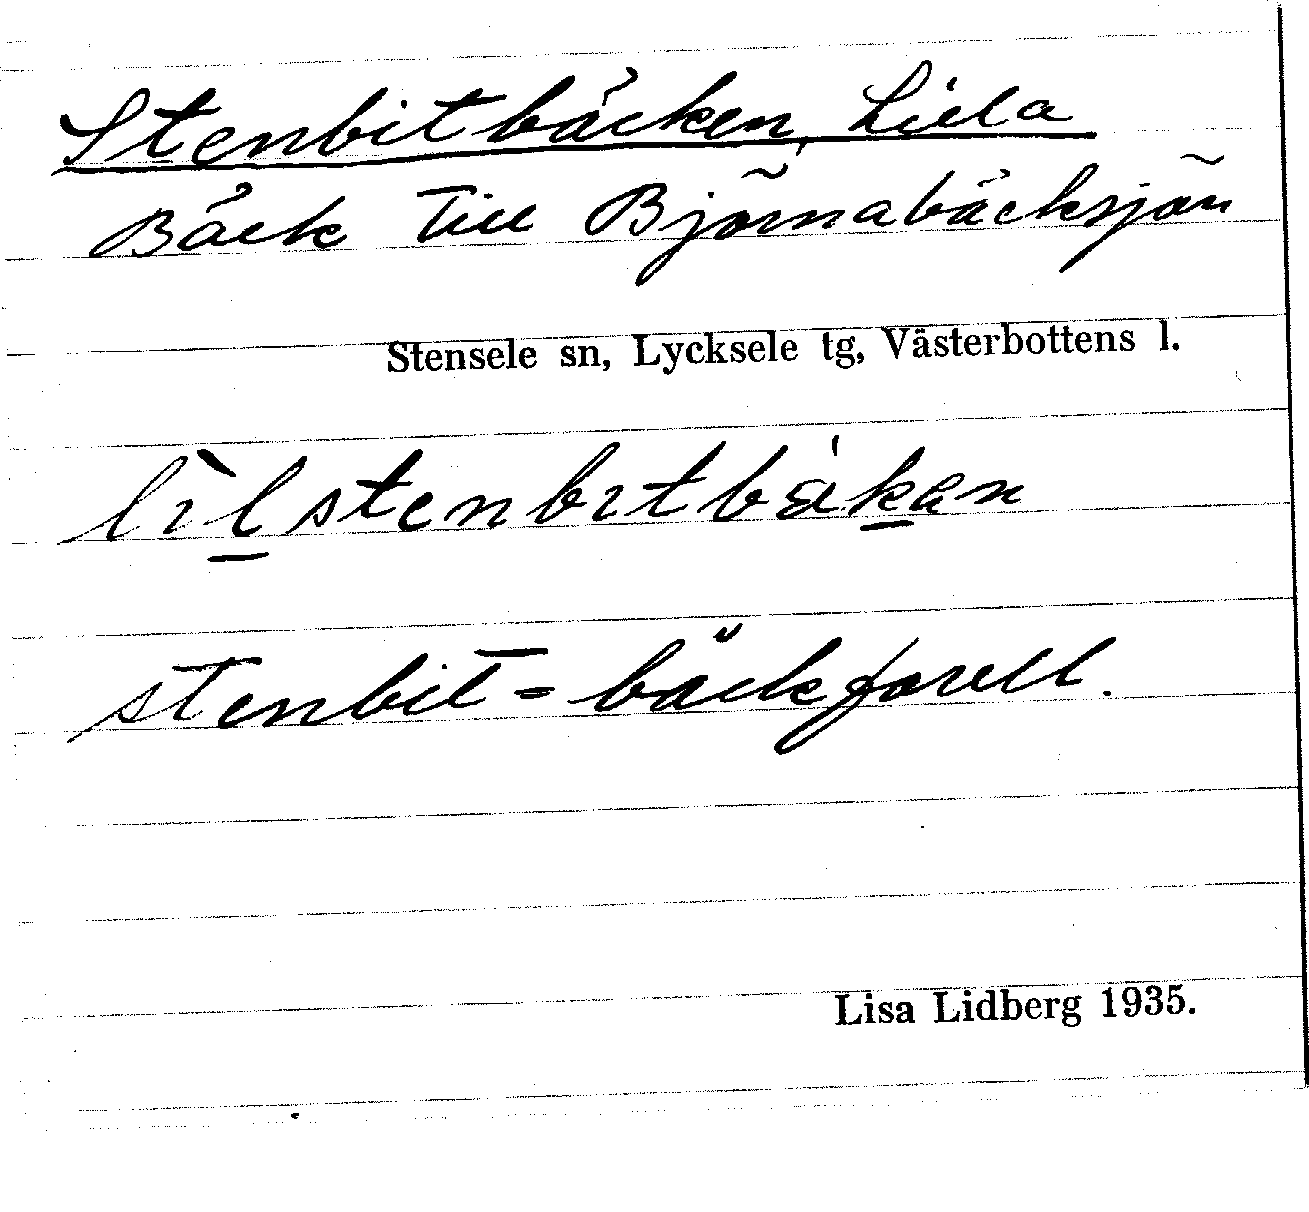 Stenbitbäcken, Lilla
Bäck till Björnabäcksjön
Stensele sn, Lycksele tg, Västerbottens l.
lìl̲stenbɩtbák̲en
stenbit = bäckforell.
Lisa Lidberg 1935.